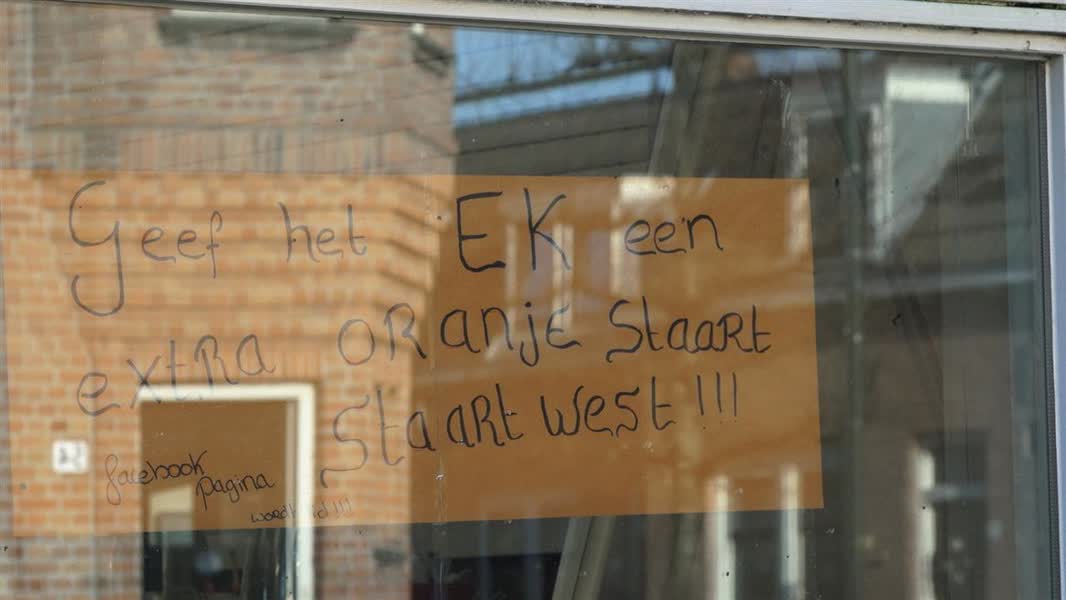 Geef het EK een
extra oranje staart
Staart West !!!
facebook
pagina
word lid!!!